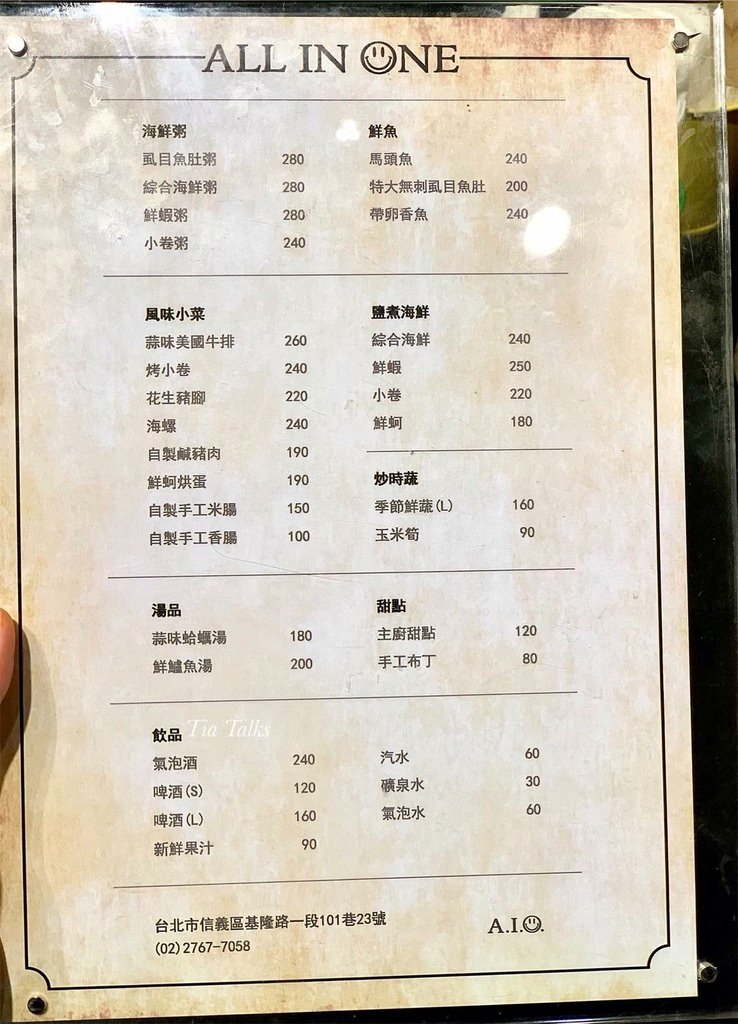 ALL IN ONE
海鮮粥
虱目魚肚粥 280
綜合海鮮粥 280
鮮蝦粥 280
小卷粥 240
鮮魚
馬頭魚 240
特大無刺虱目魚肚 200
帶卵香魚 240
風味小菜
蒜味美國牛排 260
烤小卷 240
花生豬腳 220
海螺 240
自製鹹豬肉 190
鮮蚵烘蛋 190
自製手工米腸 150
自製手工香腸 100
鹽煮海鮮
綜合海鮮 240
鮮蝦 250
小卷 220
鮮蚵 180
炒時蔬
季節鮮蔬(L) 160
玉米筍 90
湯品
蒜味蛤蠣湯 180
鮮鱸魚湯 200
甜點
主廚甜點 120
手工布丁 80
飲品
Tia Talks
氣泡酒 240
啤酒(S) 120
啤酒(L) 160
新鮮果汁 90
汽水 60
礦泉水 30
氣泡水 60
台北市信義區基隆路一段101巷23號
(02)2767-7058
A.I.O.